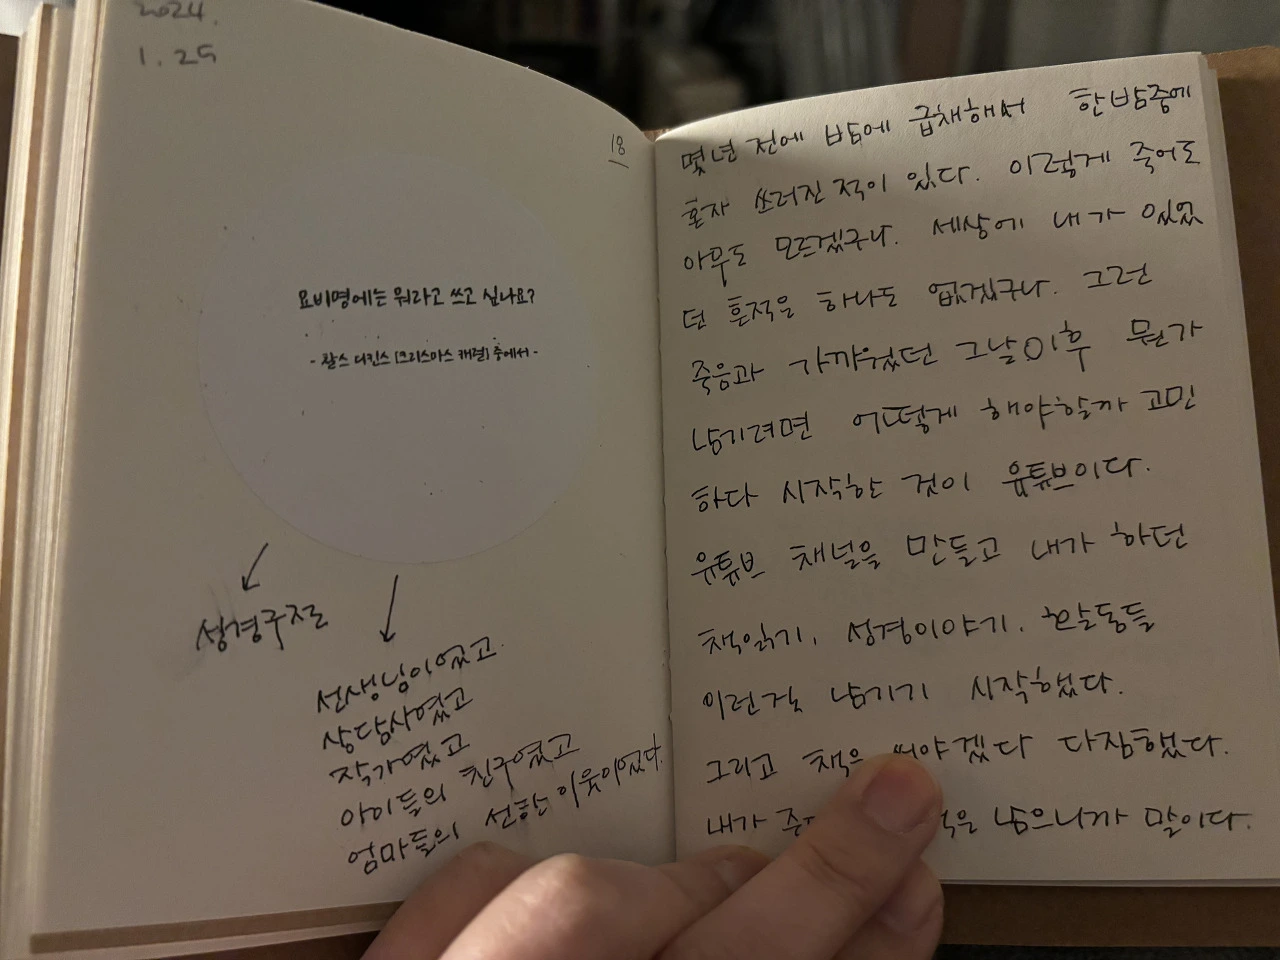 2024.
1. 25
18
묘비명에는 뭐라고 쓰고 싶나요?
- 찰스 디킨스 [크리스마스 캐럴] 중에서 -
성경구절
선생님이었고.
상담사였고
작가였고
아이들의 친구였고
엄마들의 선한 이웃이었다.
몇년 전에 밤에 급체해서 한밤중에
혼자 쓰러진 적이 있다. 이렇게 죽어도
아무도 모르겠구나. 세상에 내가 있었
던 흔적은 하나도 없겠구나. 그런
죽음과 가까웠던 그날이후 뭔가
남기려면 어떻게 해야할까 고민
하다 시작한 것이 유튜브이다.
유튜브 채널을 만들고 내가 하던
책읽기, 성경이야기, 활동들
이런걸 남기기 시작했다.
그리고 책은 써야겠다 다짐했다.
내가 남으니까 말이다.